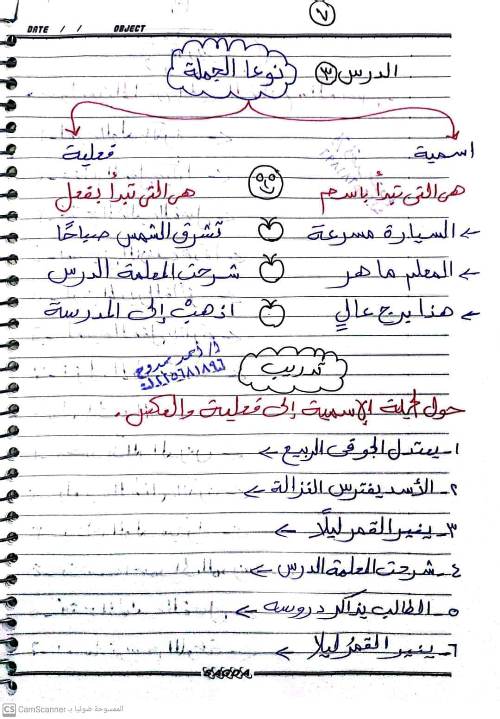 ٧
DATE / / OBJECT
الدرس ٣ نوعا الجملة
اسمية فعلية
هى التى تبدأ باسم هى التى تبدأ بفعل
← السيارة مسرعة تشرق الشمس صباحًا
← المعلم ماهر شرحت المعلمة الدرس
← هذا برج عالٍ اذهبْ إلى المدرسة
تدريب أ/ أحمد ممدوح
حول الجملة الإسمية إلى فعلية والعكس.
١- يعتدل الجو فى الربيع ←
٢- الأسد يفترس الغزالة ←
٣- ينير القمر ليلًا ←
٤- شرحت المعلمة الدرس ←
٥- الطالب يذاكر دروسه ←
٦- ينير القمرُ ليلا ←
CS CamScanner الممسوحة ضوئيا بـ